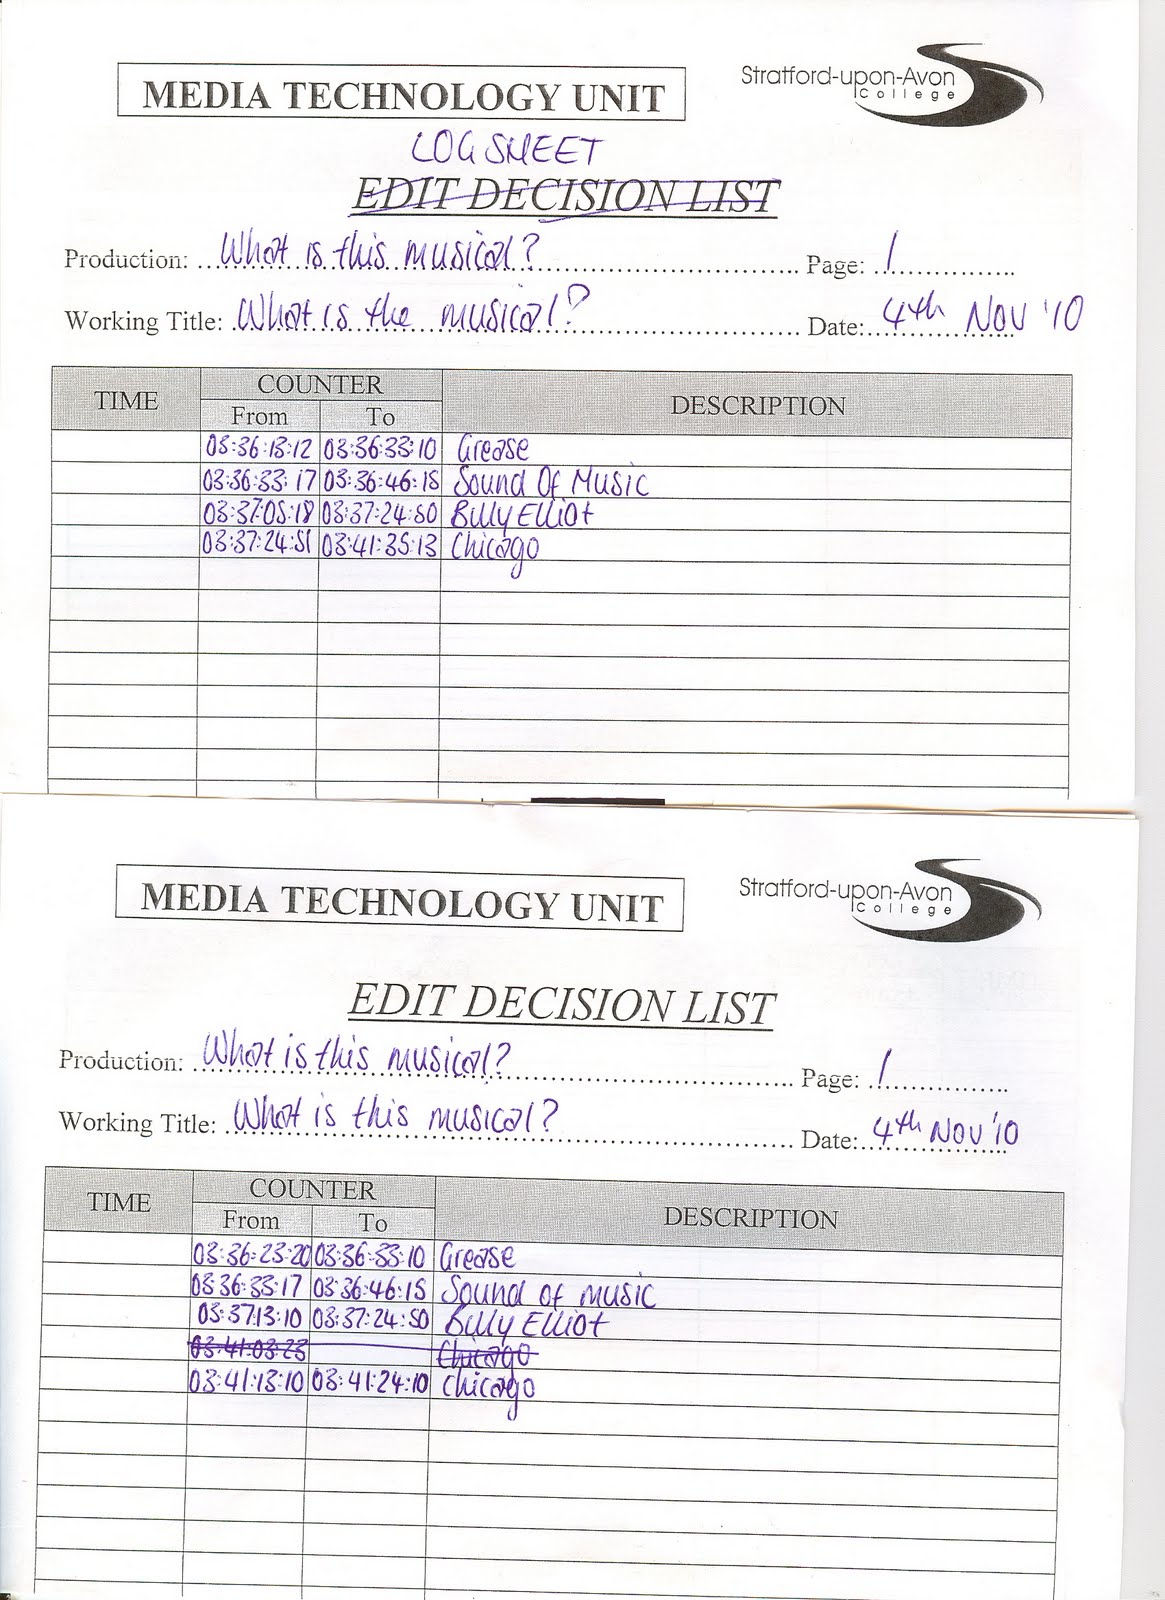 Stratford-upon-Avon
College
MEDIA TECHNOLOGY UNIT
LOG SHEET
EDIT DECISION LIST
Production: What is this musical? Page: 1
Working Title: What is the musical? Date: 4th Nov '10
TIME COUNTER DESCRIPTION
From To
03:36:13:12 03:36:33:10 Grease
03:36:33:17 03:36:46:15 Sound Of Music
03:37:05:18 03:37:24:50 Billy Elliot
03:37:24:51 03:41:35:13 Chicago
Stratford-upon-Avon
College
MEDIA TECHNOLOGY UNIT
EDIT DECISION LIST
Production: What is this musical? Page: 1
Working Title: What is this musical? Date: 4th Nov '10
TIME COUNTER DESCRIPTION
From To
03:36:23:20 03:36:33:10 Grease
03:36:33:17 03:36:46:15 Sound of music
03:37:13:10 03:37:24:50 Billy Elliot
03:41:03:23 Chicago
03:41:13:10 03:41:24:10 Chicago